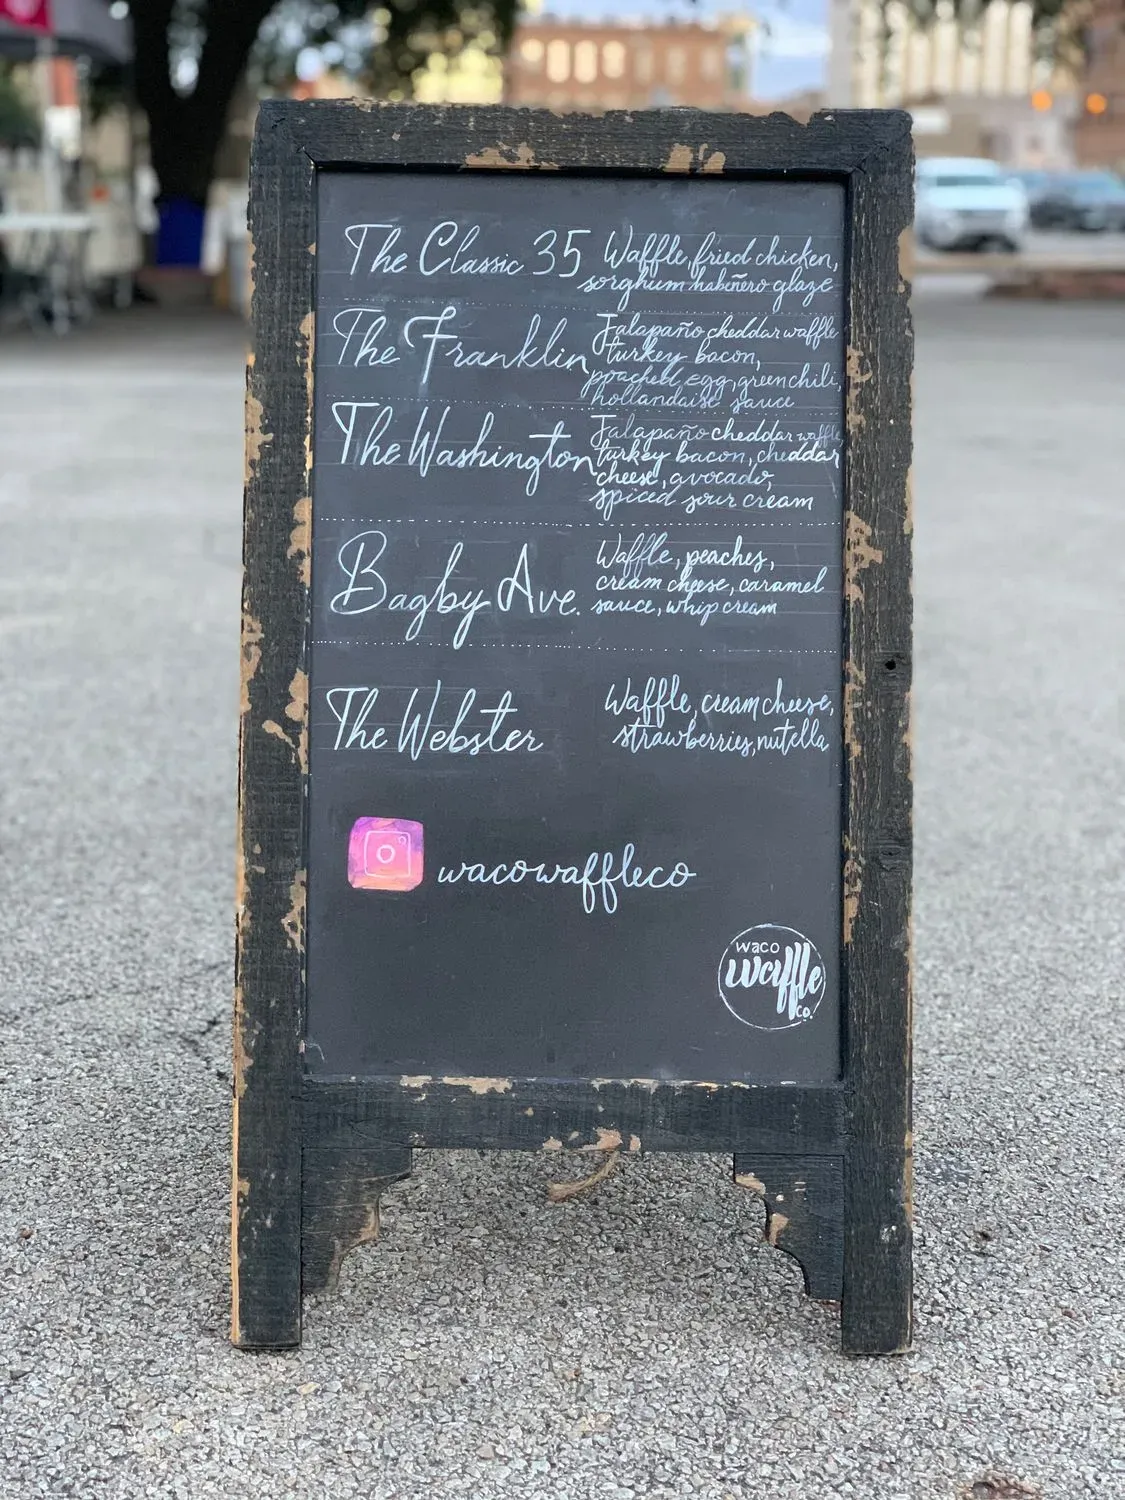 The Classic 35 Waffle, fried chicken,
sorghum habeñero glaze
The Franklin Jalapaño cheddar waffle
turkey bacon,
poached egg, green chili,
hollandaise sauce
The Washington Jalapaño cheddar waffle
turkey bacon, cheddar
cheese, avocado,
spiced sour cream
Bagby Ave. Waffle, peaches,
cream cheese, caramel
sauce, whip cream
The Webster Waffle, cream cheese,
strawberries, nutella
wacowaffleco
waco
waffle
co.